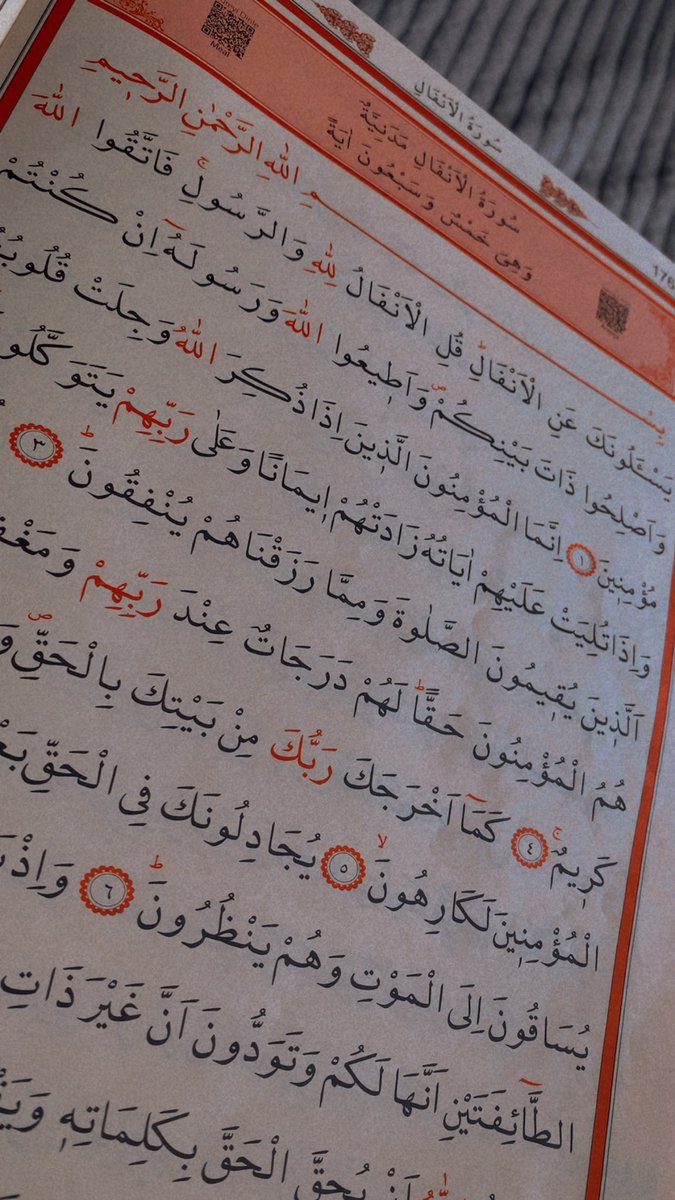 سُورَةُ الْاَنْفَالِ
176
سُورَةُ الْاَنْفَالِ مَدَنِيَّةٌ
وَهِيَ خَمْسٌ وَسَبْعُونَ اٰيَةً
Dinle
Meal
بِسْمِ اللّٰهِ الرَّحْمٰنِ الرَّحٖيمِ
يَسْـَٔلُونَكَ عَنِ الْاَنْفَالِۜ قُلِ الْاَنْفَالُ لِلّٰهِ وَالرَّسُولِۚ فَاتَّقُوا اللّٰهَ
وَاَصْلِحُوا ذَاتَ بَيْنِكُمْۖ وَاَطٖيعُوا اللّٰهَ وَرَسُولَهُٓ اِنْ كُنْتُمْ
مُؤْمِنٖينَ ١ اِنَّمَا الْمُؤْمِنُونَ الَّذٖينَ اِذَا ذُكِرَ اللّٰهُ وَجِلَتْ
وَاِذَا تُلِيَتْ عَلَيْهِمْ اٰيَاتُهُ زَادَتْهُمْ اٖيمَانًا وَعَلٰى رَبِّهِمْ
اَلَّذٖينَ يُقٖيمُونَ الصَّلٰوةَ وَمِمَّا رَزَقْنَاهُمْ يُنْفِقُونَۜ ٣
هُمُ الْمُؤْمِنُونَ حَقًّاۜ لَهُمْ دَرَجَاتٌ عِنْدَ رَبِّهِمْ
كَرٖيمٌۚ ٤ كَمَٓا اَخْرَجَكَ رَبُّكَ مِنْ بَيْتِكَ بِالْحَقِّۖ
الْمُؤْمِنٖينَ لَكَارِهُونَۙ ٥ يُجَادِلُونَكَ فِي الْحَقِّ
يُسَاقُونَ اِلَى الْمَوْتِ وَهُمْ يَنْظُرُونَۜ ٦ وَاِذْ
الطَّٓائِفَتَيْنِ اَنَّهَا لَكُمْ وَتَوَدُّونَ اَنَّ غَيْرَ ذَاتِ
اللّٰهُ اَنْ يُحِقَّ الْحَقَّ بِكَلِمَاتِهٖ